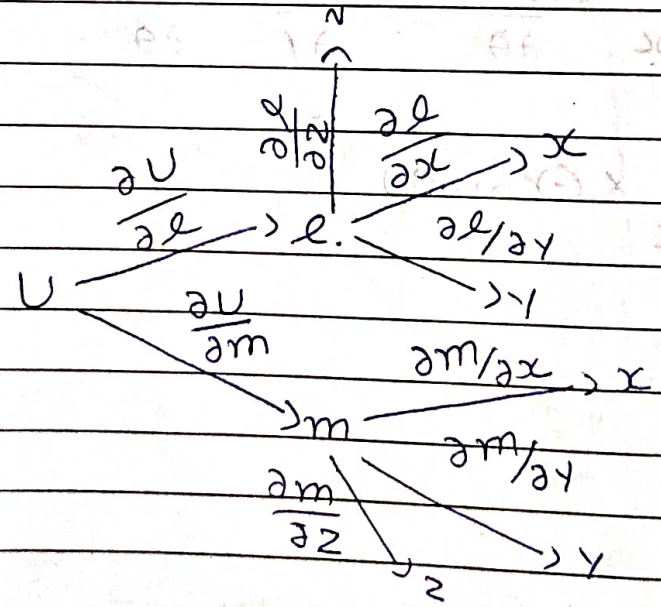 z
∂l/∂z
∂l/∂x
x
∂U/∂l
l.
∂l/∂y
y
U
∂U/∂m
∂m/∂x
x
m
∂m/∂y
∂m/∂z
y
z